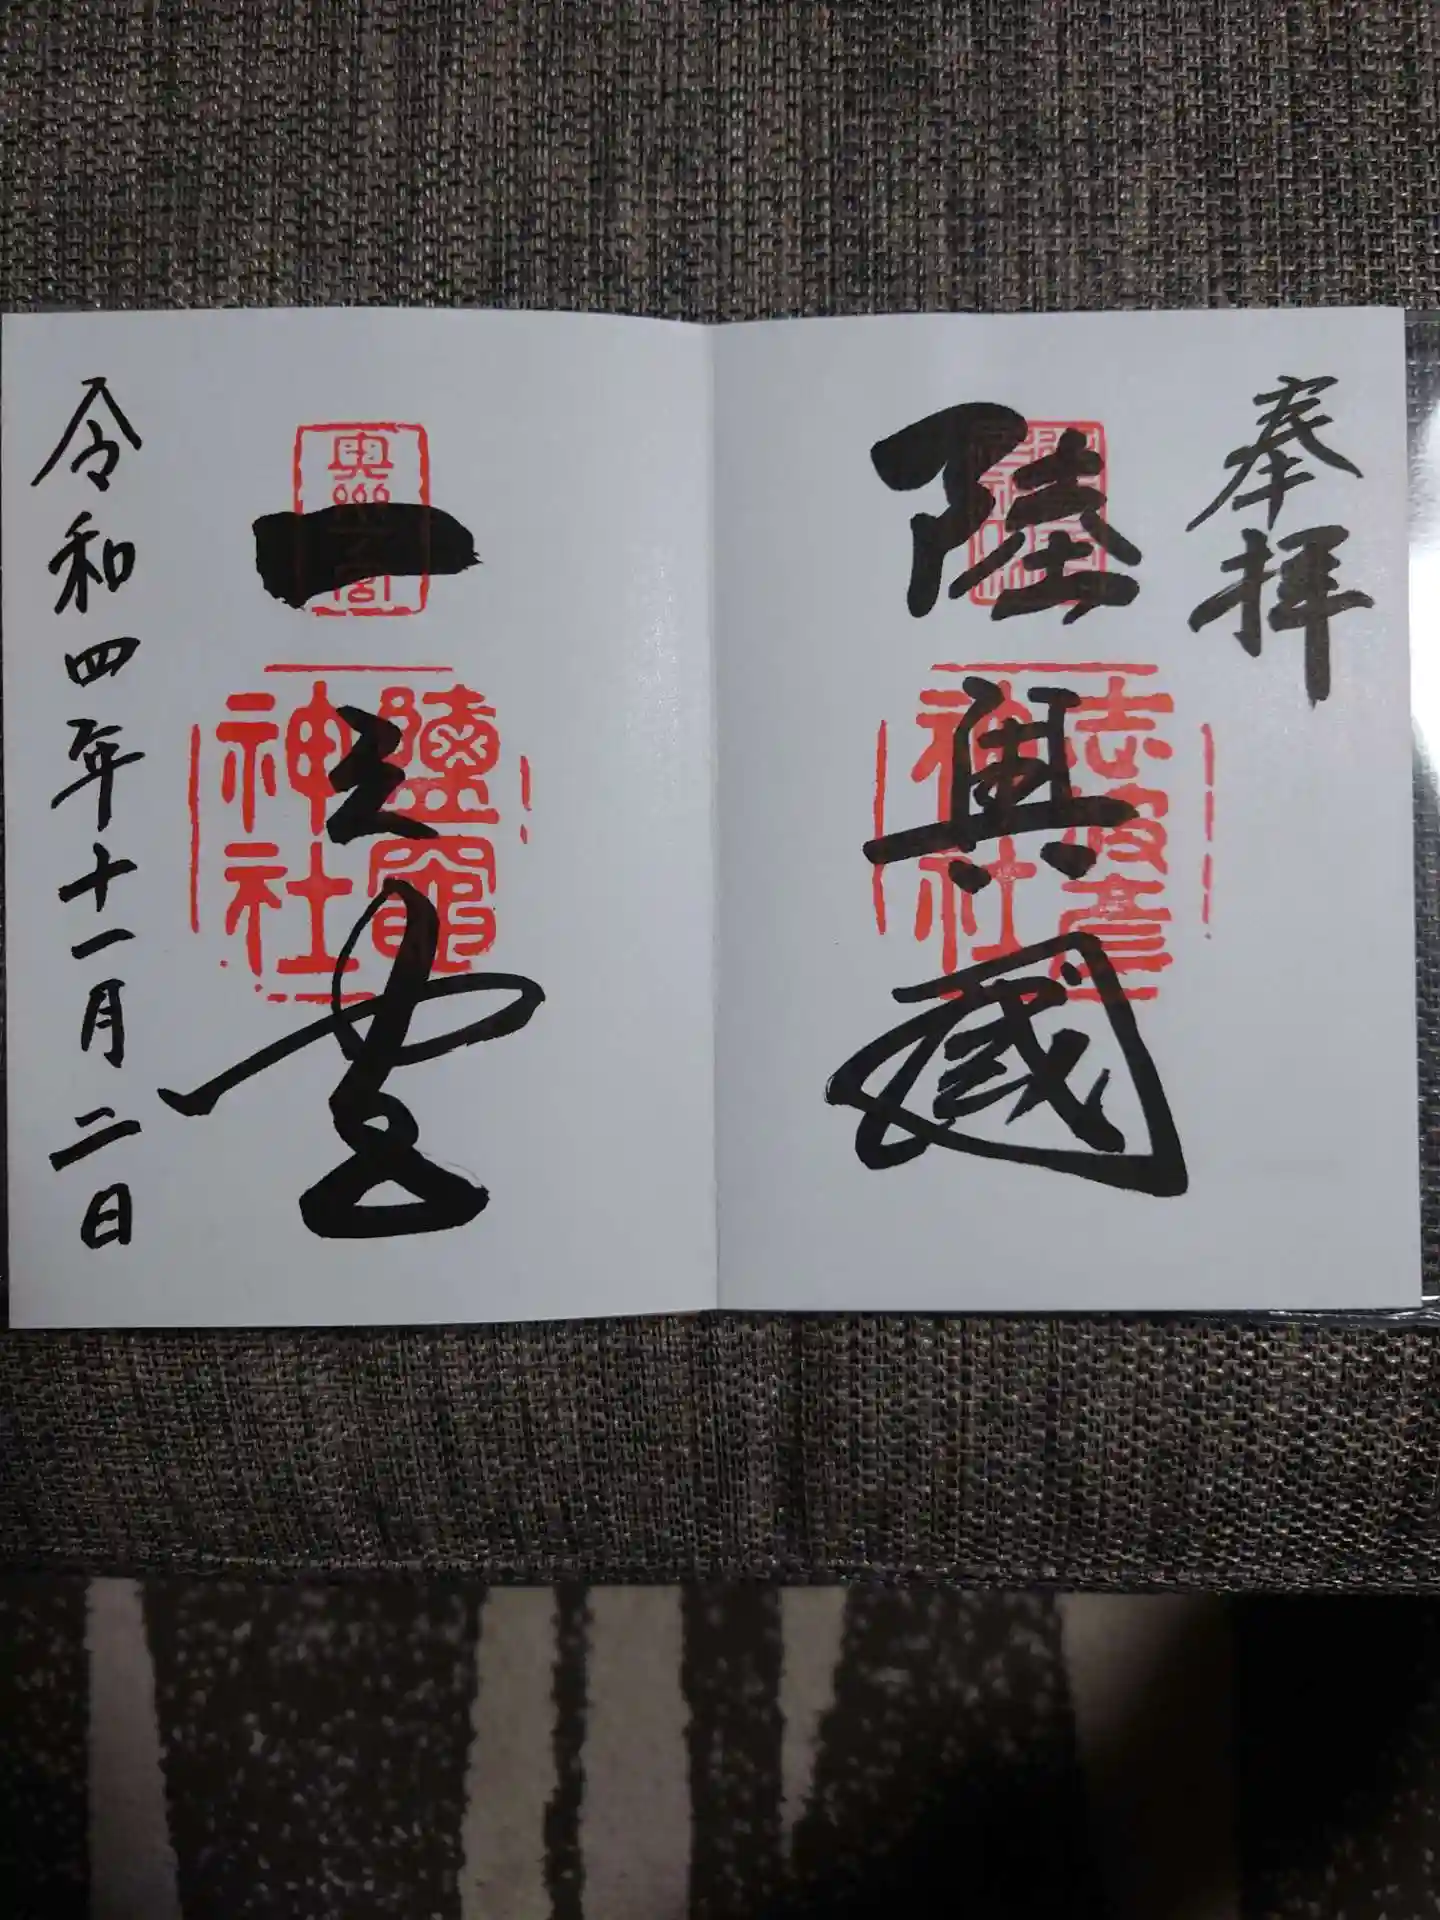 奉拝
陸奥國
志波彦
神社
一之宮
奥州一宮
鹽竈
神社
令和四年十一月二日